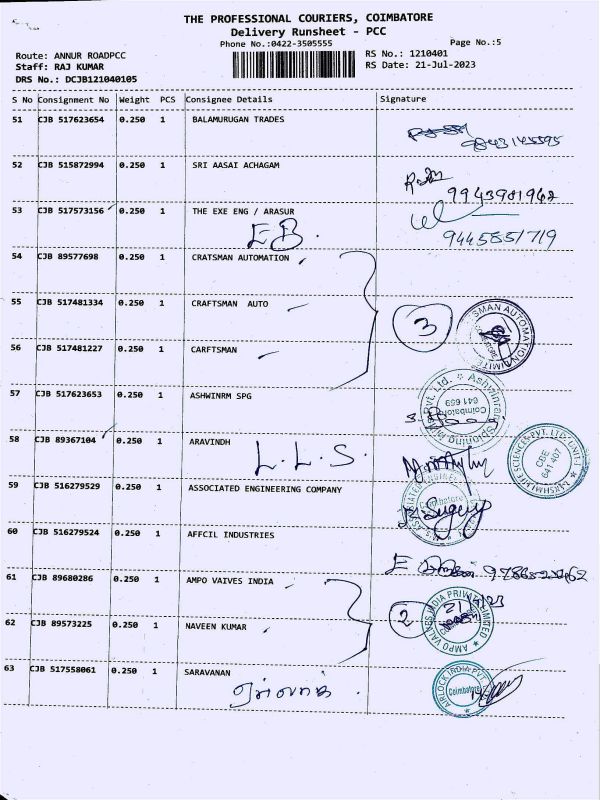 THE PROFESSIONAL COURIERS, COIMBATORE
Delivery Runsheet - PCC
Phone No.:0422-3505555
Page No.:5
Route: ANNUR ROADPCC
RS No.: 1210401
Staff: RAJ KUMAR
RS Date: 21-Jul-2023
DRS No.: DCJB121040105
S No Consignment No Weight PCS Consignee Details Signature
51 CJB 517623654 0.250 1 BALAMURUGAN TRADES
52 CJB 515872994 0.250 1 SRI AASAI ACHAGAM
9943981962
53 CJB 517573156 0.250 1 THE EXE ENG / ARASUR
EB.
9445851719
54 CJB 89577698 0.250 1 CRATSMAN AUTOMATION
55 CJB 517481334 0.250 1 CRAFTSMAN AUTO
3
56 CJB 517481227 0.250 1 CARFTSMAN
57 CJB 517623653 0.250 1 ASHWINRM SPG
Coimbatore
641 659
58 CJB 89367104 0.250 1 ARAVINDH
L.L.S.
CBE
641 407
59 CJB 516279529 0.250 1 ASSOCIATED ENGINEERING COMPANY
Coimbatore
60 CJB 516279524 0.250 1 AFFCIL INDUSTRIES
61 CJB 89680286 0.250 1 AMPO VAIVES INDIA
2
AMPO VALVES INDIA PRIVATE LIMITED
62 CJB 89573225 0.250 1 NAVEEN KUMAR
63 CJB 517558061 0.250 1 SARAVANAN
ஏர்லாக்.
AIRLOCK INDIA PVT.
Coimbatore